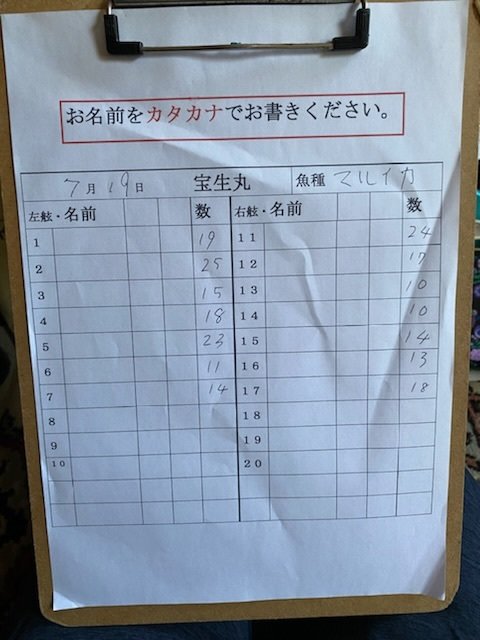 お名前をカタカナでお書きください。
7月19日 宝生丸 魚種 マルイカ
左舷・名前 数 右舷・名前 数
1 19 11 24
2 25 12 17
3 15 13 10
4 18 14 10
5 23 15 14
6 11 16 13
7 14 17 18
8 18
9 19
10 20